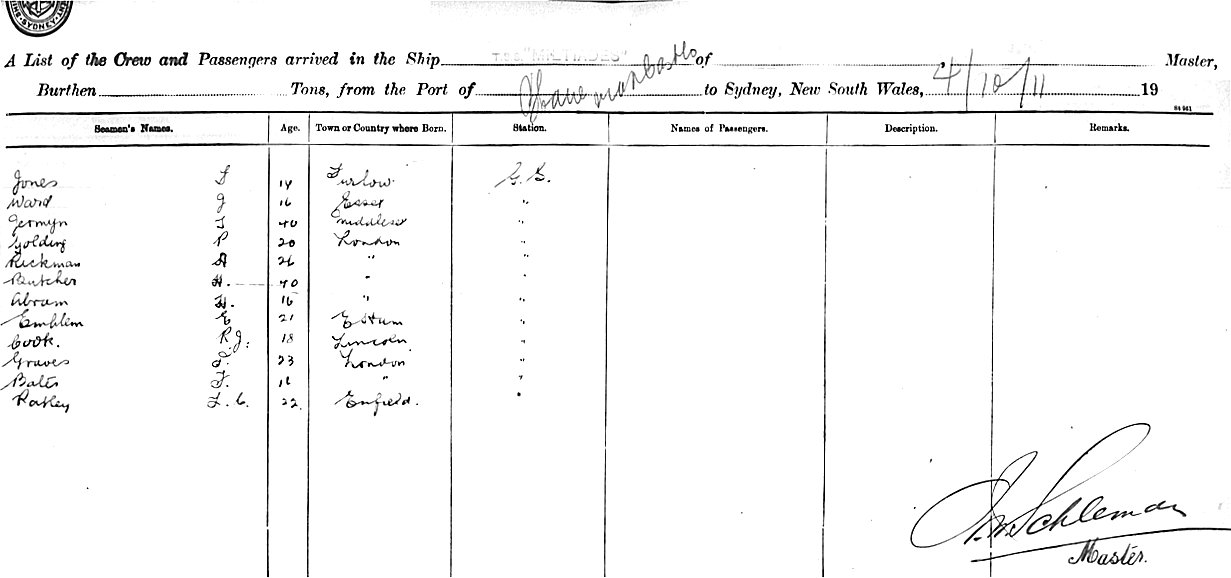 SYDNEY
A List of the Crew and Passengers arrived in the Ship of Master,
Burthen Tons, from the Port of to Sydney, New South Wales, 4/10/11 19
Seamen's Names. Age. Town or Country where Born. Station. Names of Passengers. Description. Remarks.
Jones F 14 Furlow G.S.
Ward J 16 Essex "
Jermyn 40 Middlesex "
Golding P 20 London "
Rickman A 26 " "
Butcher H. 40 " "
Abram H. 16 " "
Emblem E 21 E Ham "
Cook. R.J. 18 Lincoln "
Graves 23 London "
Bates F. 16 " "
22 Enfield. "
Schleman
Master.